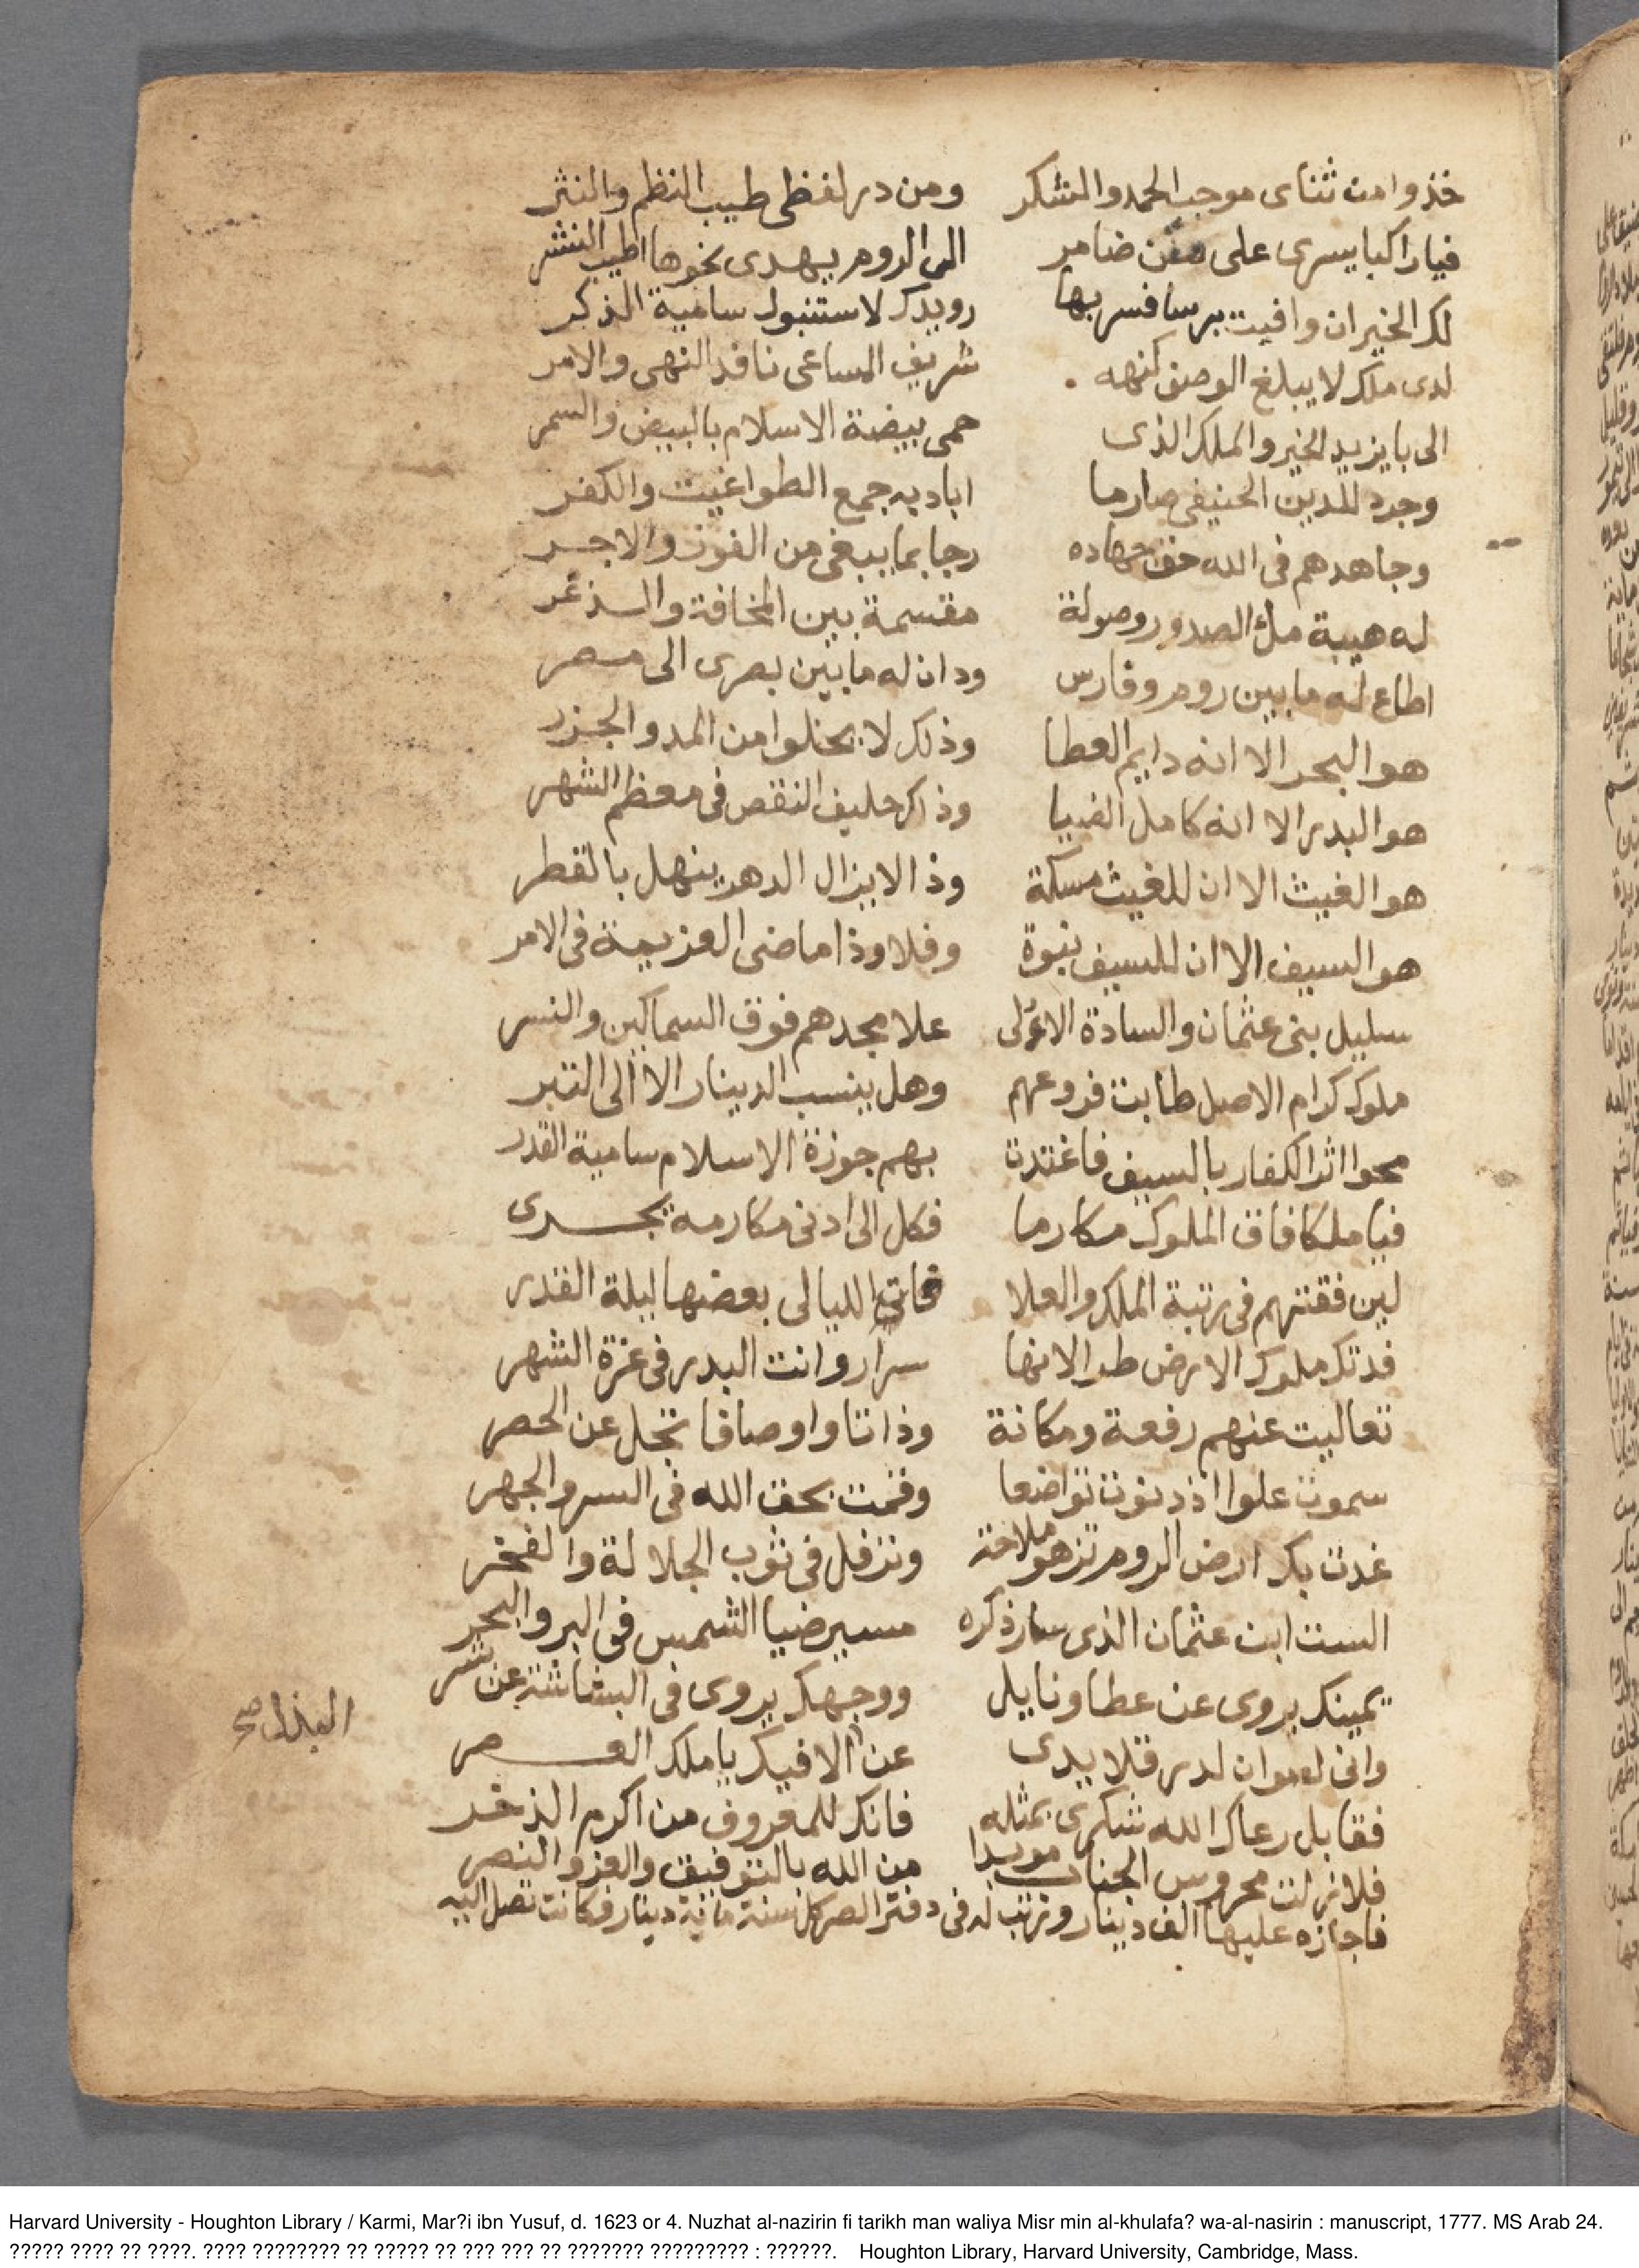 خذوا من ثناى موجب الحمد والشكر ومن در لفظى طيب النظم والنثر
فيا راكبا يسرى على ضامر الى الروم يهدى نحوها اطيب النشر
لك الخير ان وافيت برسا فسر بها رويدك لاستنبول سامية الذكر
لدى ملك لا يبلغ الوصف كنهه شريف المساعى نافذ النهى والامر
الى بايزيد الخير والملك الذى حمى بيضة الاسلام بالبيض والسمر
وجرد للدين الحنيفى صارما اباد به جمع الطواغيت والكفر
وجاهدهم فى الله حق جهاده رجا بما يبغى من الفوز والاجر
له هيبة ملئ الصدور وصولة مقسمة بين المخافة والذعر
اطاع له ما بين روم وفارس ودان له ما بين بصرى الى مصر
هو البحر الا انه دايم العطا وذلك لا يخلوا من المد والجزر
هو البدر الا انه كامل الضيا وذاك حليف النقص فى معظم الشهر
هو الغيث الا ان للغيث مسكة وذا لا يزال الدهر ينهل بالقطر
هو السيف الا ان للسيف نبوة وفلا وذا ماضى العزيمة فى الامر
سليل بنى عثمان والسادة الاولى علا مجدهم فوق السماكين والنسر
ملوك كرام الاصل طابت فروعهم وهل ينسب الدينار الا الى التبر
محوا اثر الكفار بالسيف فاغتدت بهم حوزة الاسلام سامية القدر
فيا ملكا فاق الملوك مكارما فكل الى ادنى مكارمه يجرى
لين فقتهم فى رتبة الملك والعلا الليالى بعضها ليلة القدر
فدتك ملوك الارض طرا لانها سرار وانت البدر فى غرة الشهر
تعاليت عنهم رفعة ومكانة وذاتا واوصافا تجل عن الحصر
سموت علوا اذ دنوت تواضعا وقمت بحق الله فى السر والجهر
غدت بك ارض الروم تزهو ملاحة وترفل فى ثوب الجلالة والفخر
الست ابن عثمان الذى سار ذكره مسير ضيا الشمس فى البر والبحر
يمينك يروى عن عطا ونايل ووجهك يروى فى البشاشة عن بشر
وانى لصوان لدر قلايدى عن الا فيك يا ملك العصر
فقابل رعاك الله شكرى بمثله فانك للمعروف من اكرم الذخر
فلا زلت محروس الجناب مويدا من الله بالتوفيق والعز والنصر
فاجازه عليها الف دينار ورتب له فى دفتر الصر كل سنة ماية دينار فكانت تصل اليه